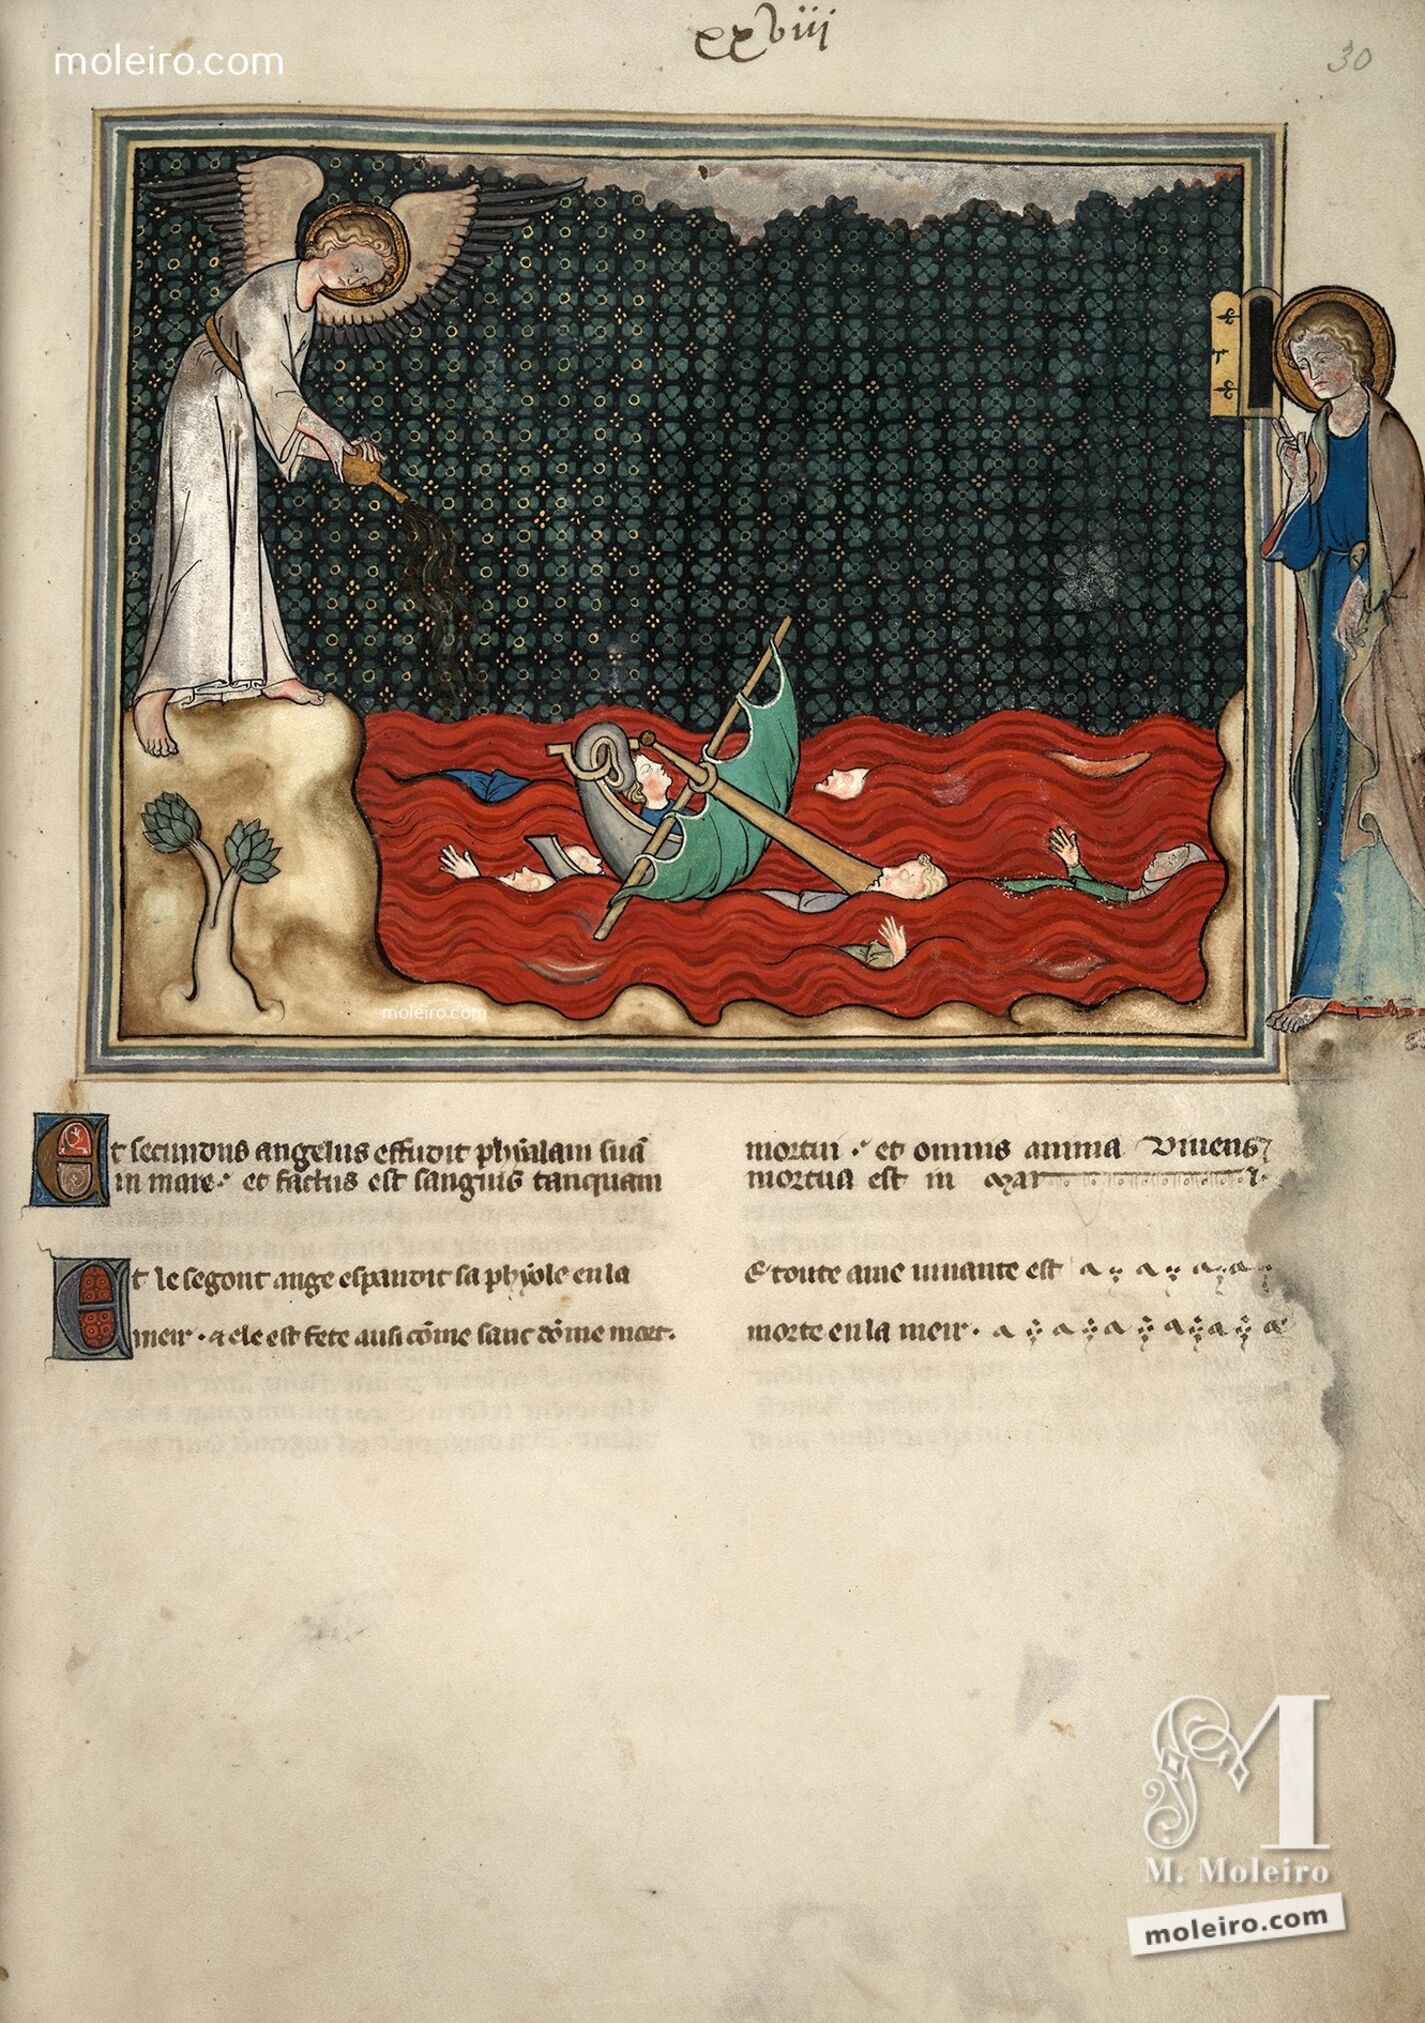 moleiro.com
xxviij
30
moleiro.com
Et secundus angelus effudit phyalam suā
in mare · et factus est sanguis tanquam
mortui · et omnis anima viuens
mortua est in mari
Et le segont ange espandit sa phyole en la
meir · a ele est fete ausi cōme sanc dōme mort.
E toute ame uiuante est
morte en la meir ·
M
M. Moleiro
moleiro.com